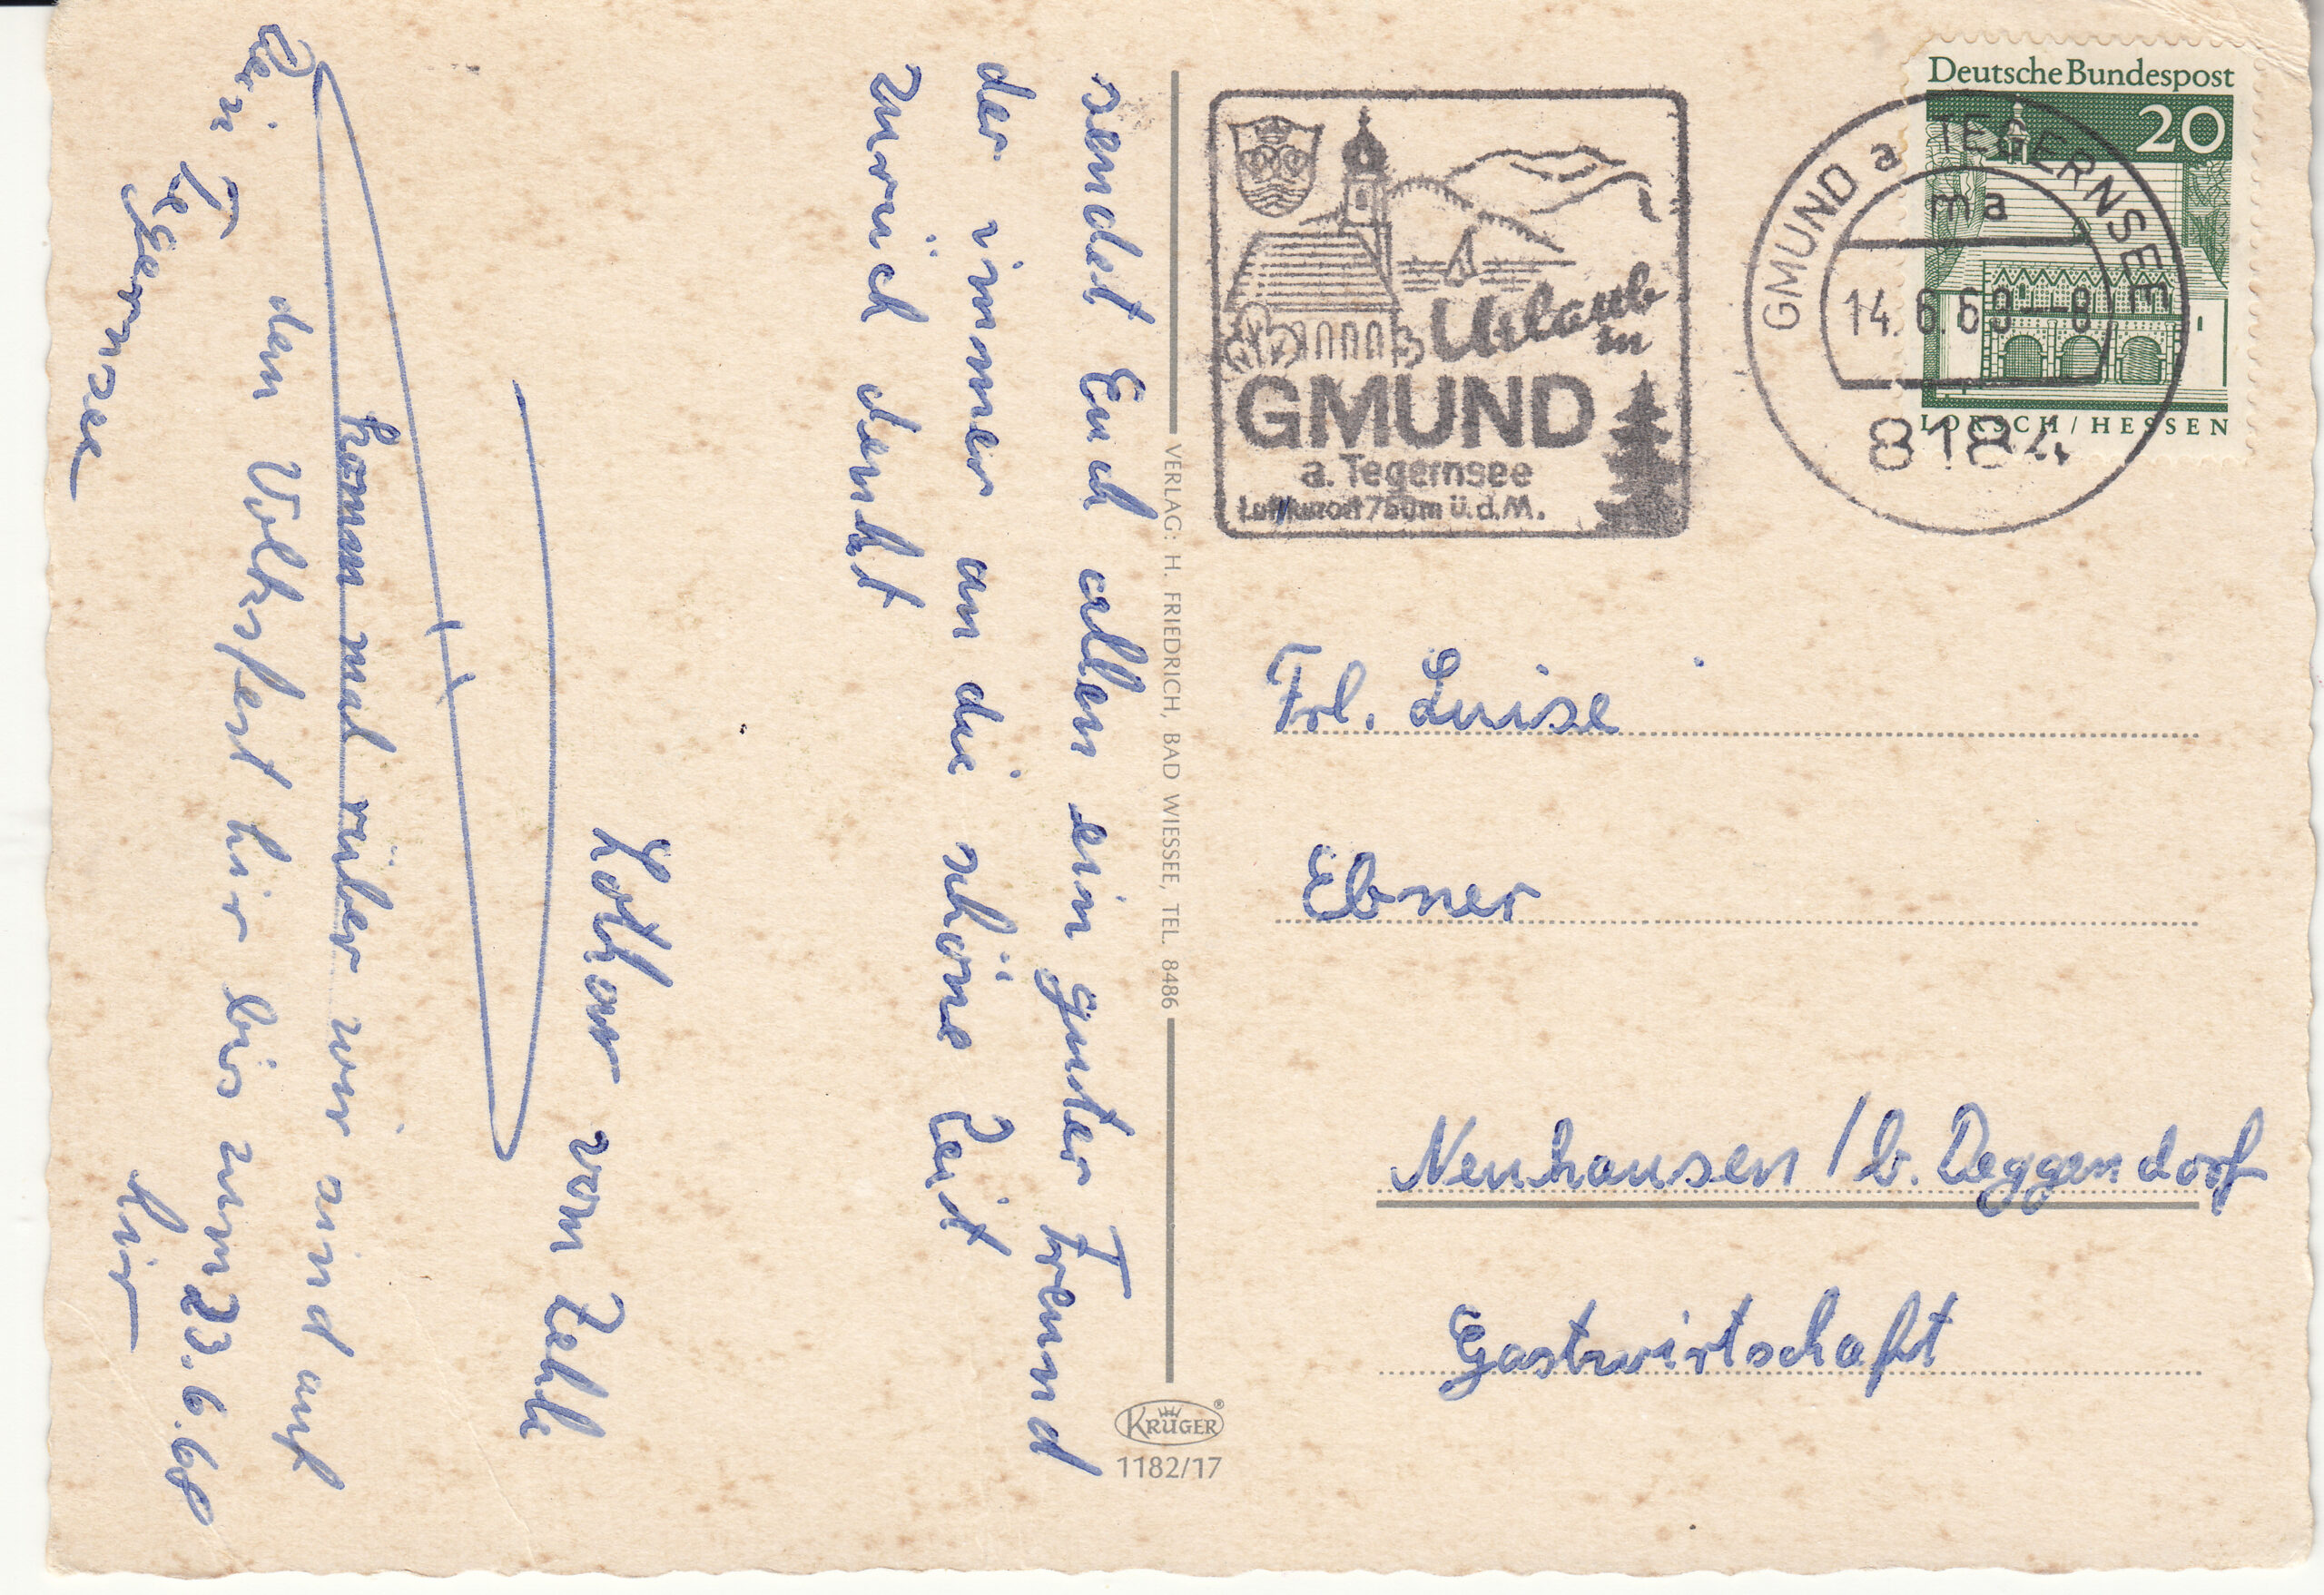 sendet Euch allen ein guter Freund
der immer an die schöne Zeit
zurück denkt
Lothar vom Zelt
komm mal rüber wir sind auf
dem Volksfest hier bis zum 23.6.68
Tegernsee hier
VERLAG: H. FRIEDRICH, BAD WIESSEE, TEL. 8486
KRÜGER®
1182/17
Urlaub
in
GMUND
a. Tegernsee
Luftkurort 750m ü.d.M.
GMUND a TEGERNSEE
ma
14.6.68--8
8184
Deutsche Bundespost
20
LORSCH/HESSEN
Frl. Luise
Ebner
Neuhausen / b. Deggendorf
Gastwirtschaft